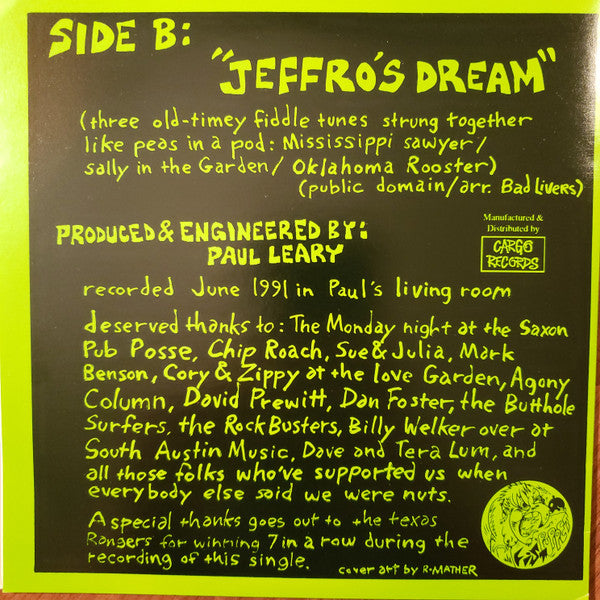 SIDE B:
"JEFFRO'S DREAM"
(three old-timey fiddle tunes strung together
like peas in a pod: Mississippi sawyer/
sally in the Garden/ Oklahoma Rooster)
(public domain/arr. Bad Livers)
PRODUCED & ENGINEERED BY:
PAUL LEARY
Manufactured &
Distributed by
CARGO
RECORDS
recorded June 1991 in Paul's living room
deserved thanks to: The Monday night at the Saxon
Pub Posse, Chip Roach, Sue & Julia, Mark
Benson, Cory & Zippy at the love Garden, Agony
Column, David Prewitt, Dan Foster, the Butthole
Surfers, the Rock Busters, Billy Welker over at
South Austin Music, Dave and Tera Lum, and
all those folks who've supported us when
everybody else said we were nuts.
A special thanks goes out to the texas
Rangers for winning 7 in a row during the
recording of this single.
cover art by R. MATHER